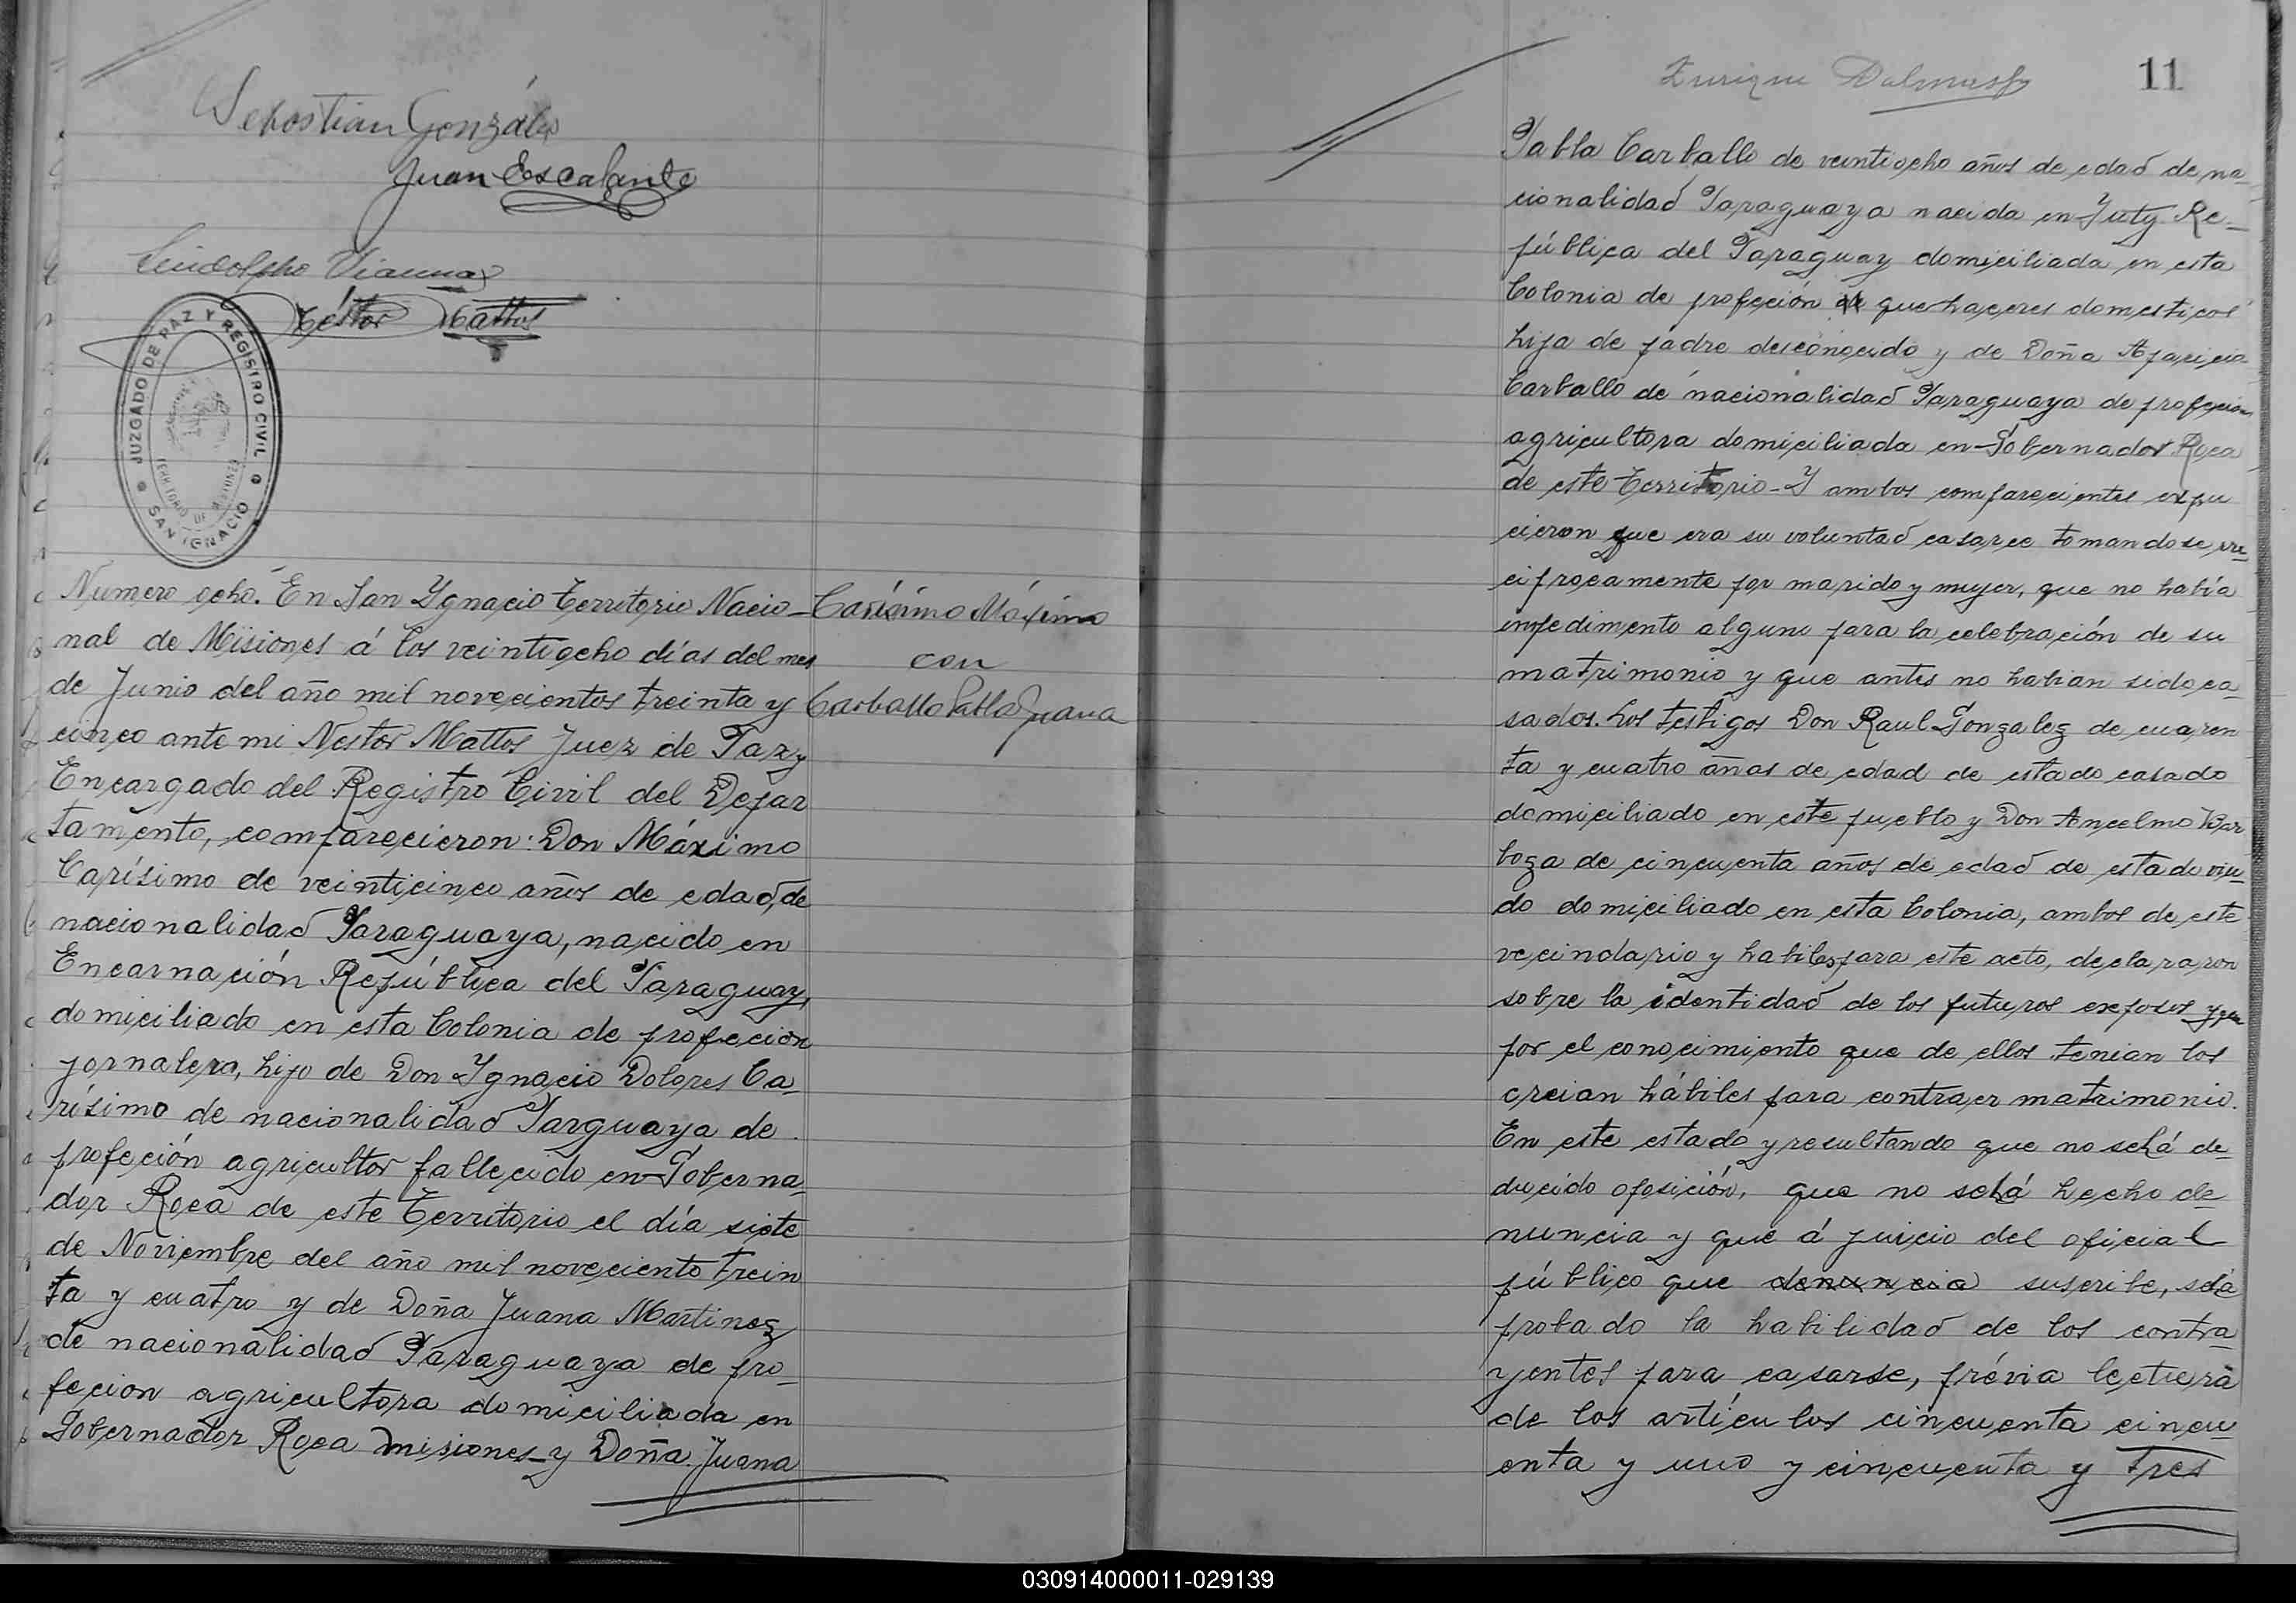 Sebastian González
Juan Escalante
Lindolpho Vianna
Néstor Mattos
JUZGADO DE PAZ Y REGISTRO CIVIL
TERRITORIO DE MISIONES
SAN IGNACIO
Numero ocho. En San Ygnacio Territorio Nacio-
nal de Misiones á los veintiocho días del mes
de Junio del año mil novecientos treinta y
cinco ante mi Nestor Mattos Juez de Paz y
Encargado del Registro Civil del Depar
tamento, comparecieron: Don Máximo
Carísimo de veinticinco años de edad, de
nacionalidad Paraguaya, nacido en
Encarnación República del Paraguay,
domiciliado en esta Colonia de profeción
jornalero, hijo de Don Ygnacio Dolores Ca-
rísimo de nacionalidad Parguaya de
profeción agricultor fallecido en Goberna-
dor Roca de este Territorio el día siete
de Noviembre del año mil noveciento trein
ta y cuatro y de Doña Juana Martinez
de nacionalidad Paraguaya de pro-
fecion agricultora domiciliada en
Gobernador Roca Misiones y Doña Juana
Carísimo Máximo
con
Carballo Pabla Juana
Enrique Dalmasty
11
Pabla Carballo de veintiocho años de edad de na-
cionalidad Paraguaya nacida en Yuty Re-
pública del Paraguay domiciliada en esta
Colonia de profeción que haceres domesticos
hija de padre desconocido y de Doña Aparicia
Carballo de nacionalidad Paraguaya de profecion
agricultora domiciliada en Gobernador Roca
de este Territorio - Y ambos comparecientes expu
cieron que era su voluntad casarce tomandose re-
ciprocamente por marido y mujer, que no había
impedimento alguno para la celebración de su
matrimonio y que antes no habian sido ca-
sados. Los testigos Don Raul Gonzalez de cuaren
ta y cuatro años de edad de estado casado
domiciliado en este pueblo y Don Ancelmo Bar
boza de cincuenta años de edad de estado viu-
do domiciliado en esta Colonia, ambos de este
vecindario y habiles para este acto, declararon
sobre la identidad de los futuros esposos y que
por el conocimiento que de ellos tenian los
creian hábiles para contraer matrimonio.
En este estado y recultando que no sehá de-
ducido oposición, que no sehá hecho de-
nuncia y que á juicio del oficial
público que denuncia suscribe, sehá
probado la habilidad de los contra
yentes para casarse, prévia lectura
de los artículos cincuenta cincu-
enta y uno y cincuenta y tres
030914000011-029139